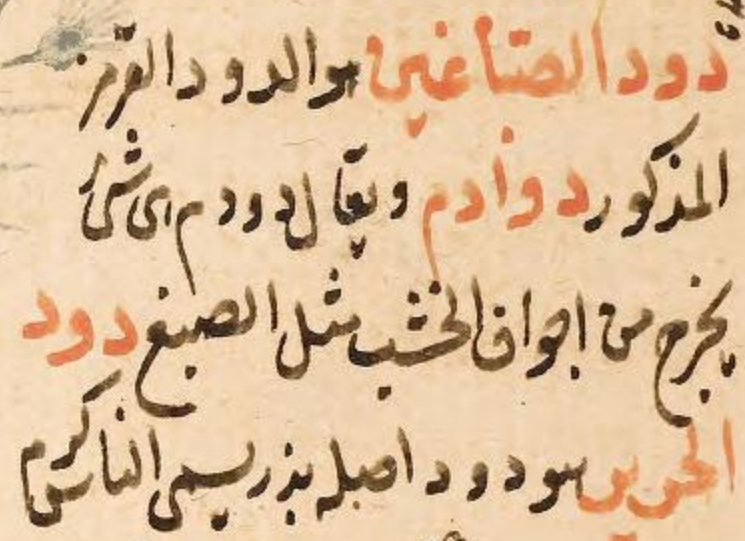 دود الصباغين هو الدود القرمز
المذكور دوادم ويقال دودم هى شئ
يخرج من اجواف الخشب مثل الصبغ دود
الحرير هو دود اصله بذر يسمى الناس كرم